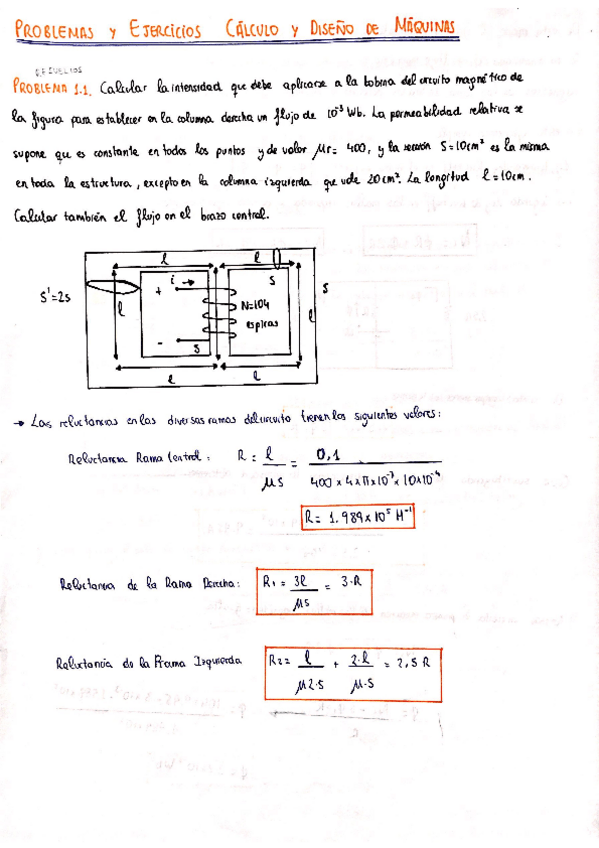 PROBLEMAS Y EJERCICIOS CÁLCULO Y DISEÑO DE MÁQUINAS
RESUELTOS
PROBLEMA 1.1. Calcular la intensidad que debe aplicarse a la bobina del circuito magnético de
la figura para establecer en la columna derecha un flujo de 10⁻³ Wb. La permeabilidad relativa se
supone que es constante en todos los puntos y de valor μr = 400, y la sección S=10cm² es la misma
en toda la estructura, excepto en la columna izquierda que vale 20cm². La longitud l=10cm.
Calcular también el flujo en el brazo central.
l l
i
S
S'=2S
+
l
N=104
espiras
l
S
-
S
l l
→ Las reluctancias en las diversas ramas del circuito tienen los siguientes valores:
Reluctancia Rama Central: R = l/μS = 0,1/400 × 4×π×10⁻⁷×10×10⁻⁴
R = 1.989×10⁵ H⁻¹
Reluctancia de la Rama Derecha: R1 = 3l/μS = 3·R
Reluctancia de la Rama Izquierda R2 = l/μ2·S + 2·l/μ·S = 2,5 R